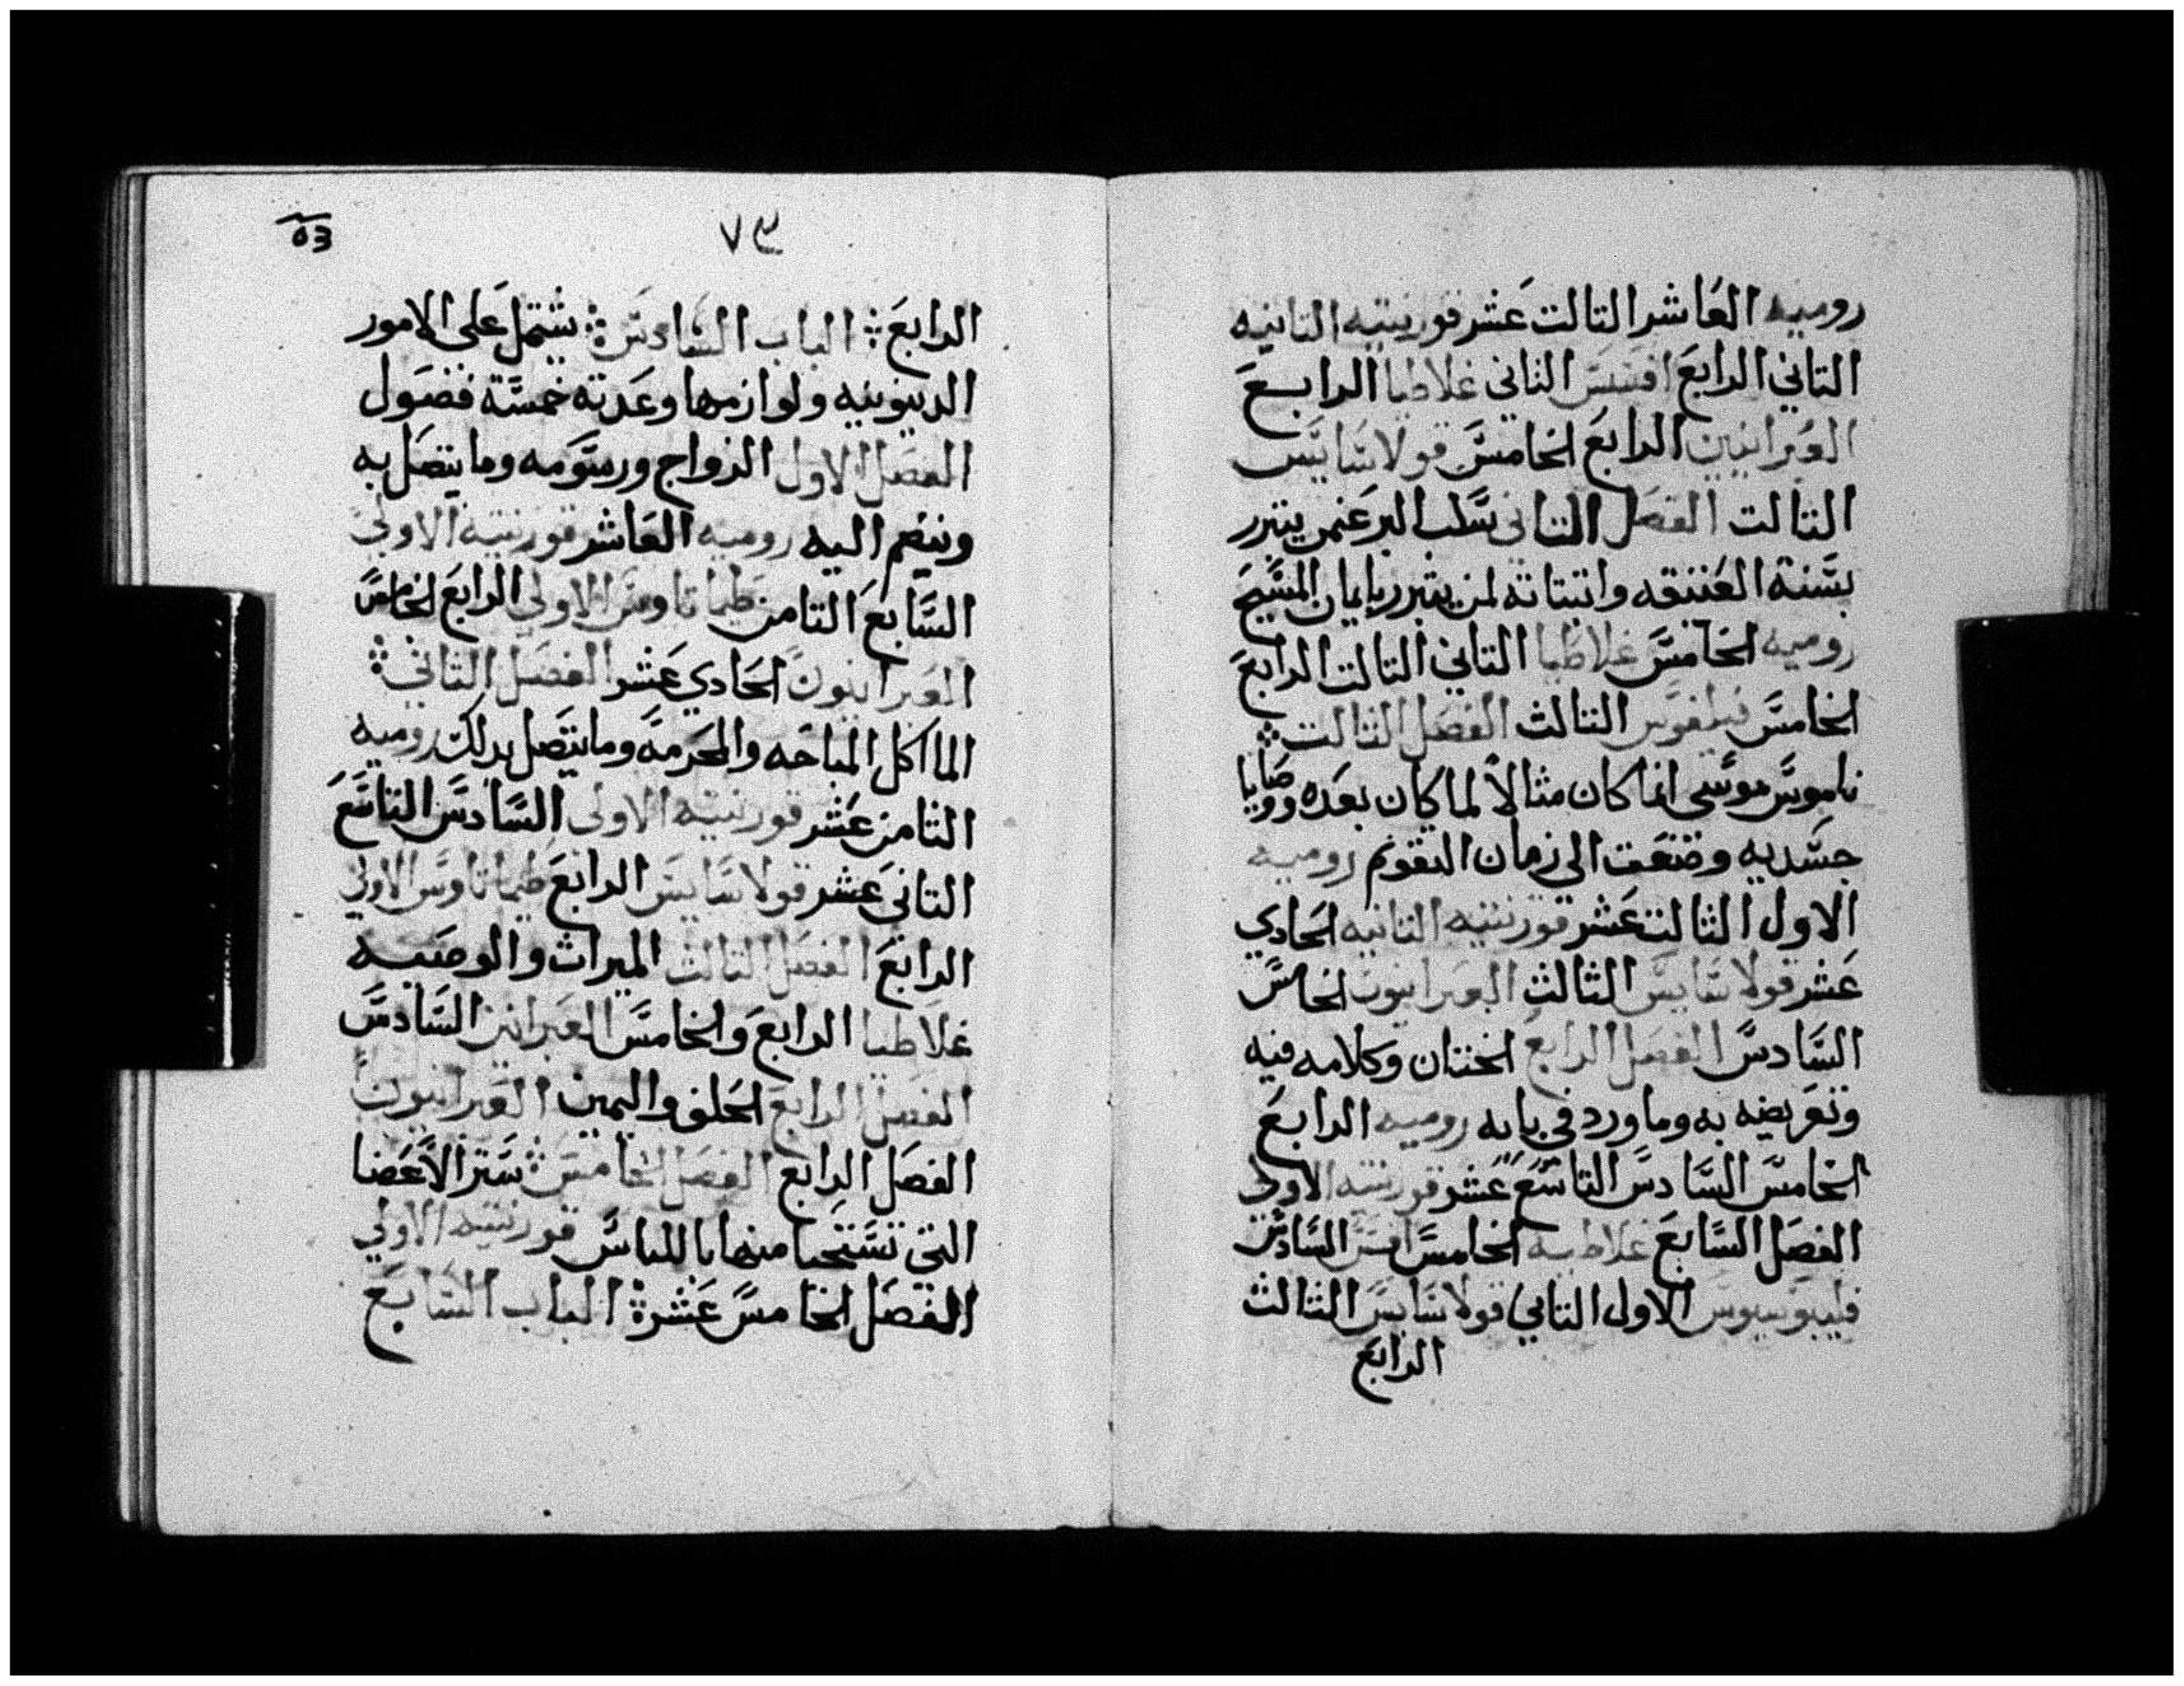 روميه العاشر التالت عشر قورنتيه التانيه
التاني الرابع افسس التانى غلاطيا الرابع
العبرانيين الرابع الخامس قولاسايس
التالت الفصل التانى سلب البر عنمن يتبرر
بسنة العتيقه واتباته لمن يتبرر بايمان المسيح
روميه الخامس غلاطيا التاني التالت الرابع
الخامس فيلفوس التالث الفصل التالت
ناموس موسى انما كان مثالاً لما كان بعده ووصايا
جسديه وضعت الى زمان التقويم روميه
الاول الثالث عشر قورنتيه التانيه الحادي
عشر قولاسايس الثالث العبرانيون الخامس
السادس الفصل الرابع الختان وكلامه فيه
وتعريضه به وما ورد في بابه روميه الرابع
الخامس السادس التاسع عشر قورنتيه الاولى
الفصل السابع غلاطيه الخامس افسس السادس
فليبوسيوس الاول التاني قولاسايس الثالث
الرابع
٧٣
الرابع الباب السادس يشتمل على الامور
الدينونيه ولوازمها وعدته خمسة فصول
الفصل الاول الزواج ورسومه وما يتصل به
وينضم اليه روميه العاشر قورنتيه الاولى
السابع التامن طيماتاوس الاولي الرابع الخامس
العبرانيون الحادي عشر الفصل الثاني
الماكل المباحه والمحرمه وما يتصل بدلك روميه
الثامن عشر قورنتيه الاولى السادس التاسع
التانى عشر قولاسايس الرابع طيماتاوس الاولى
الرابع الفصل الثالث الميرات والوصيه
غلاطيا الرابع والخامس العبرانين السادس
الفصل الرابع الحلف واليمين العبرانيون
الفصل الرابع الفصل الخامس ستر الاعضا
التي تستحيا منها باللباس قورنتيه الاولي
الفصل الخامس عشرة الباب السابع